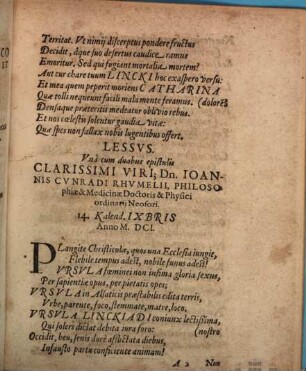 Territat. Vt nimij discerptus pondere fructus
Decidit, dque suo desertus caudice ramus
Emoritur. Sed qui fugiant mortalia mortem?
Ant tur chare tuum LINCKI hoc exaspero versu:
Et mea quem peperit moriens CATHARINA
Quæ tolli nequeunt facili mala mente feramus. (dolorē?
Densaque præteritis meditatur oblivio rebus.
Et nos cœlestis solentur gaudia vitæ:
Quæ spes non fallax nobis lugentibus offert.
LESSVS.
Vnà cum duabus epistulis
CLARISSIMI VIRI, Dn. IOAN-
NIS CVNRADI RHVMELII, PHILOSO-
phiæ & Medicinæ Doctoris & Physici
ordinarij Neofori.
14. Kalend. IXBRIS
Anno M. DCI.
PLangite Christicolæ, quos una Ecclesia iungit,
Flebile tempus adest, nobile funus adest!
VRSVLA fœminei non infima gloria sexus,
Per sapientiæ opus, per pietatis opes;
VRSVLA in Alsaticis præstabilis edita terris,
Vrbe, parente, foco, stemmate, matre, loco,
VRSVLA LINCKIADI coniunx lectissima,
Qui solers dictat debita iura foro: (nostro
Occidit, heu, fenis duré afflictata diebus,
Infausto partu confiĉiente animam!
A 2 Non